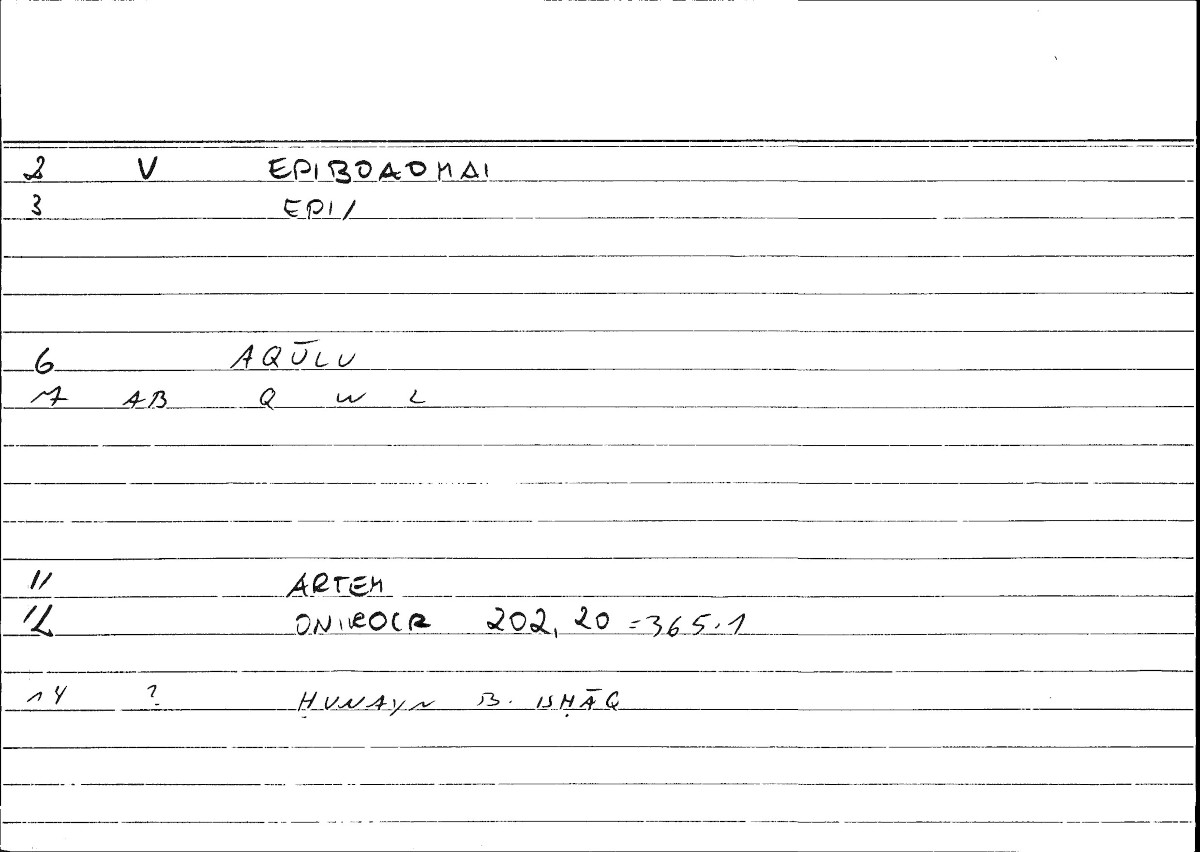 2 V EPIBOAOMAI
3 EPI/
6 AQŪLU
7 AB Q W L
11 ARTEM
12 ONIROCR 202, 20 = 365.1
14 ? ḤUNAYN B. ISḤĀQ